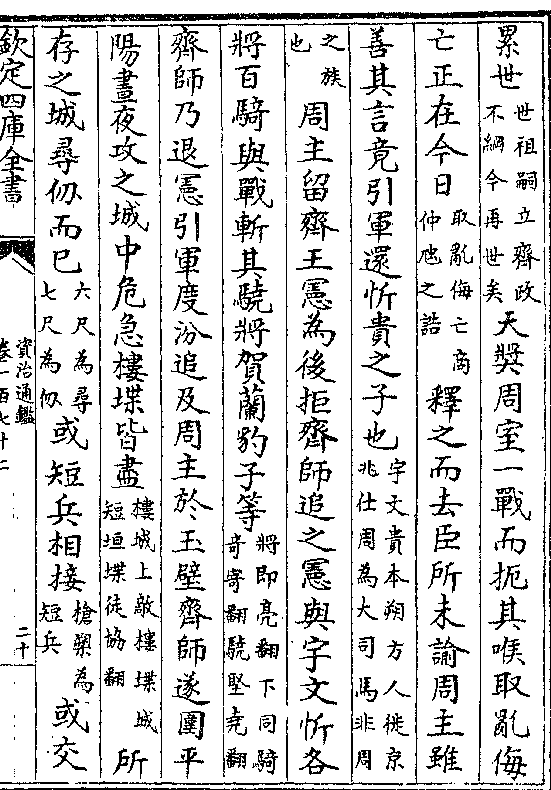 累世世祖嗣立齊政不綱今再世矣天奬周室一戰而扼其喉取亂侮
亡正在今日取亂侮亡商仲虺之誥釋之而去臣所未諭周主雖
善其言竟引軍還忻貴之子也宇文貴本朔方人徙京兆仕周為大司馬非周
之族也周主留齊王憲為後拒齊師追之憲與宇文忻各
將百騎與戰斬其驍將賀蘭豹子等將即亮翻下同騎奇寄翻驍堅堯翻
齊師乃退憲引軍度汾追及周主於玉壁齊師遂圍平
陽晝夜攻之城中危急樓堞皆盡樓城上敵樓堞城短垣堞徒協翻所
存之城尋仭而已六尺為尋七尺為仭或短兵相接槍槊為短兵或交
欽定四庫全書
資治通鑑
卷一百七十二
二十